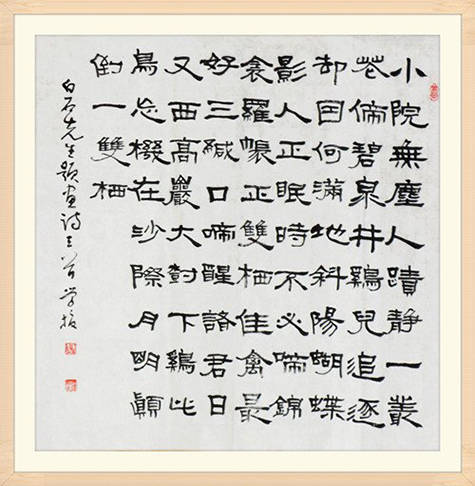 小院無塵人蹟靜一叢
花傍碧泉井鷄兒追逐
却因何滿地斜陽蝴蝶
影人正眠時不必啼錦
衾羅帳正雙栖佳禽最
好三緘口啼醒諸君日
又西高巖大對下鷄比
鳥忘機在沙際月明顛
倒一雙栖
白石先生題畫詩三首 学振